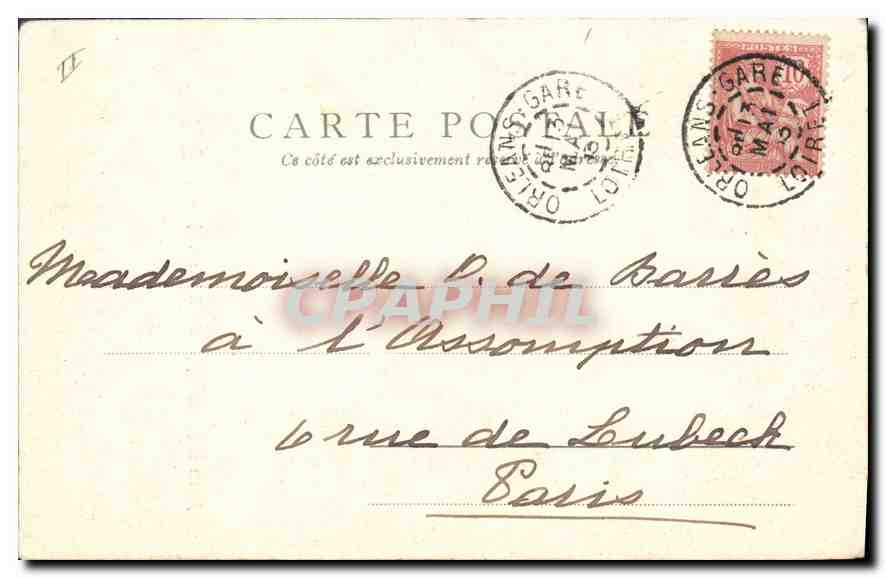 II
POSTES
10
ORLEANS-GARE
MAI
LOIRET
ORLEANS-GARE
MAI
LOIRET
CARTE POSTALE
Ce côté est exclusivement réservé à l'adresse
CPAPHIL
Meademoiselle O. de Barrès
à l'Assomption
6 rue de Lubeck
Paris